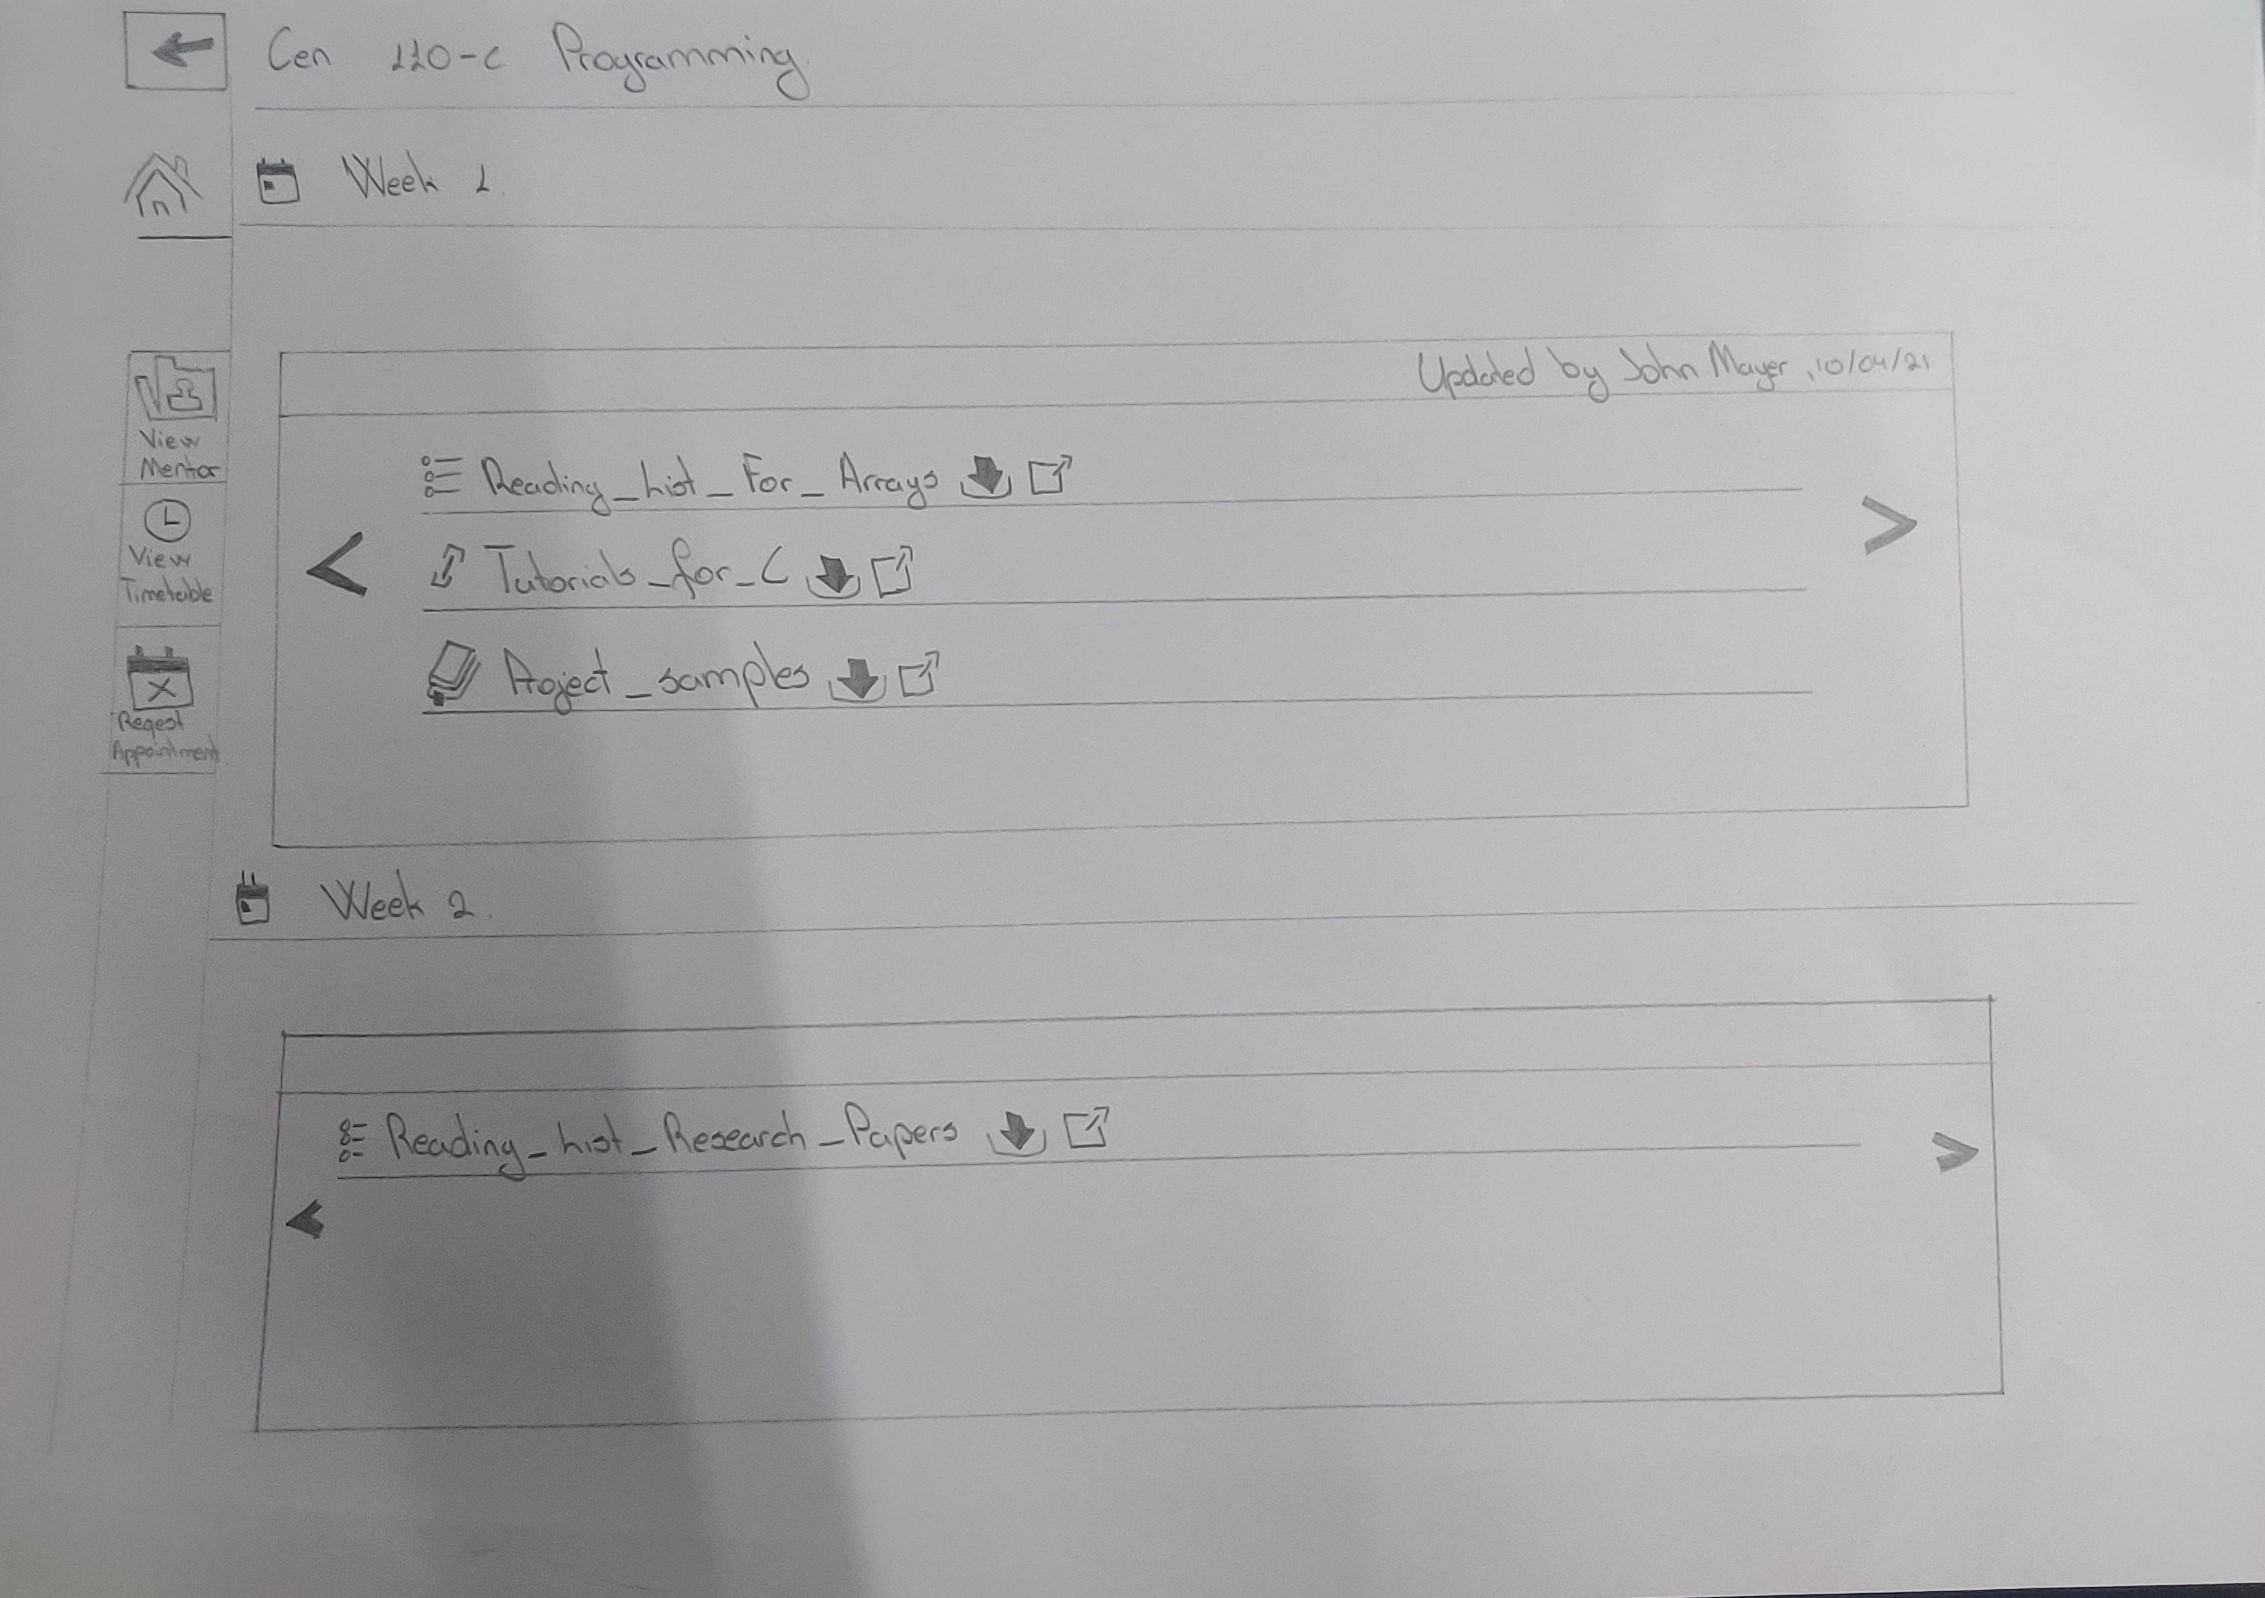 Cen 110-C Programming
Week 1.
View
Mentor
View
Timetable
Reqest
Appointment
Updated by John Mayer, 10/04/21
Reading_List_For_Arrays
Tutorials_for_C
Project_samples
Week 2.
Reading_List_Research_Papers